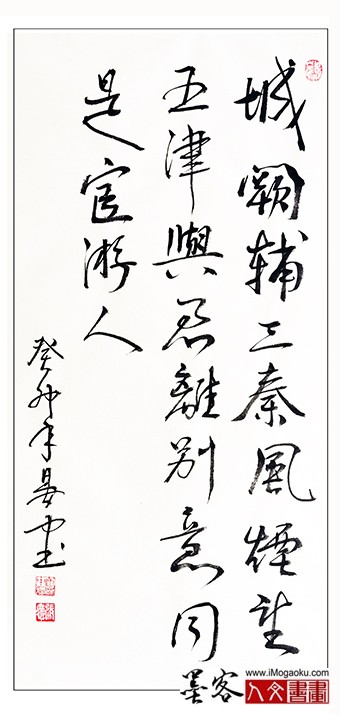 城闕輔三秦風煙望
五津與君離別意同
是宦游人
癸卯年
www.iMogaoku.com
墨客
人文書畫